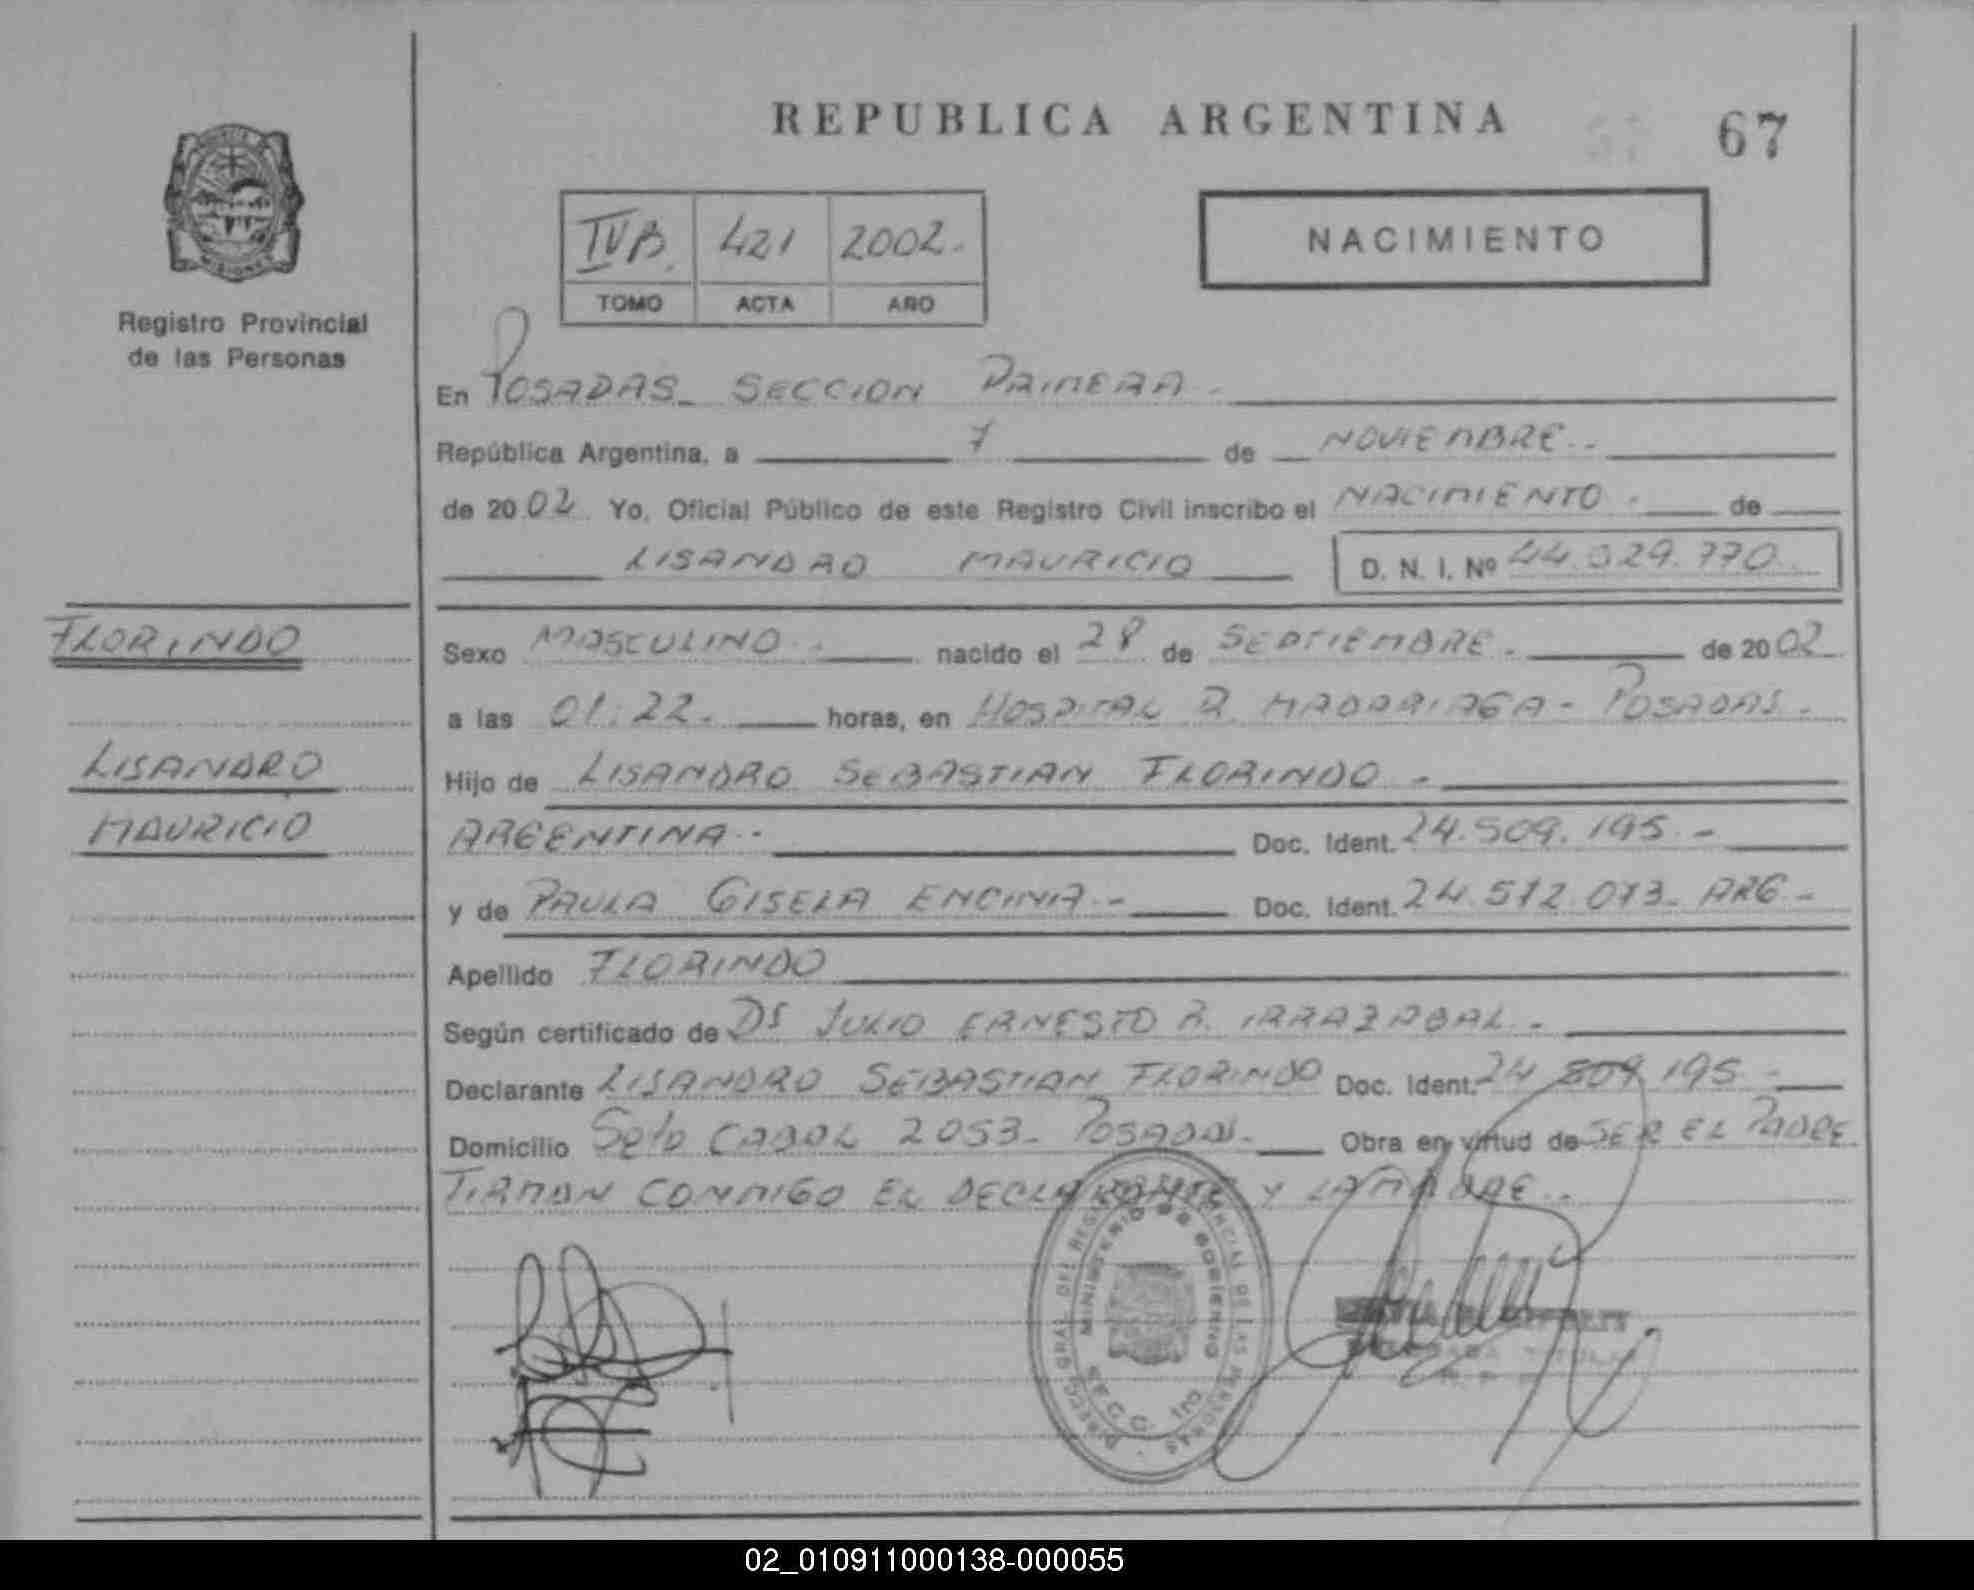 REPUBLICA ARGENTINA
67
MISIONES
Registro Provincial
de las Personas
IV B. 421 2002.-
TOMO ACTA AÑO
NACIMIENTO
En POSADAS - SECCION PRIMERA -
República Argentina, a 7 de NOVIEMBRE.-
de 2002 Yo, Oficial Público de este Registro Civil inscribo el NACIMIENTO. de
LISANDRO MAURICIO D. N. I. Nº 44.029.770
FLORINDO
LISANDRO
MAURICIO
Sexo MASCULINO.- nacido el 28 de SEPTIEMBRE.- de 2002
a las 01:22. horas, en HOSPITAL R. MADARIAGA - POSADAS.
Hijo de LISANDRO SEBASTIAN FLORINDO -
ARGENTINA.- Doc. Ident. 24.509.195.-
y de PAULA GISELA ENCINA.- Doc. Ident. 24.512.013- ARG.-
Apellido FLORINDO
Según certificado de JULIO ERNESTO R. IRRAZABAL.-
Declarante LISANDRO SEBASTIAN FLORINDO Doc. Ident. 24.509.195.-
Domicilio 2053- POSADAS.- Obra en virtud de SER EL PADRE
FIRMAN CONMIGO EL DECLARANTE Y LA MADRE.-
MINISTERIO DE GOBIERNO
SECC. 1RA
02_010911000138-000055